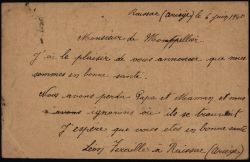 Raissac (Ariège) le 6 juin 1940
Monsieur de Montpellier
J'ai le plaisir de vous annoncer que nous
sommes en bonne santé.
Nous avons perdu Papa et Maman et nous
ignorons où ils se trouvent
J'espère que vous êtes en bonne santé
Léon à Raissac (Ariège)